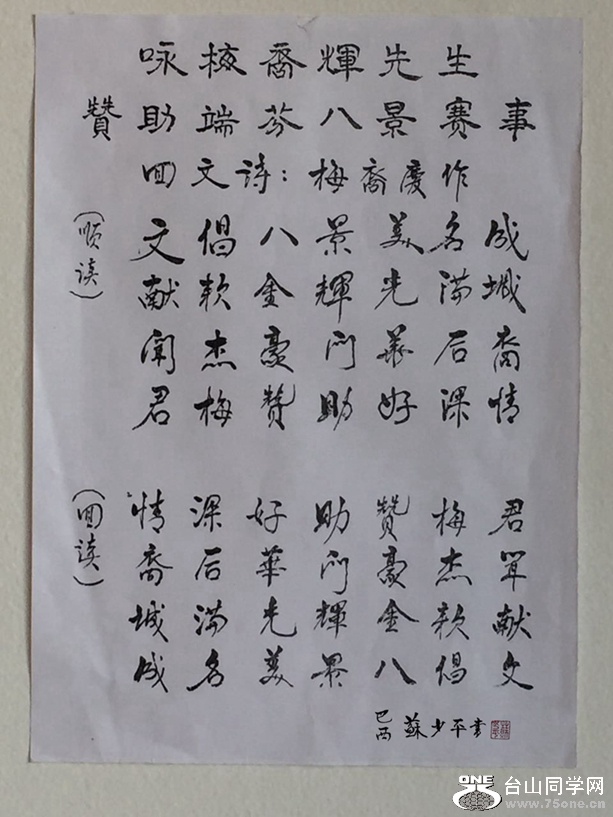 咏梅裔輝先生
贊助端芬八景賽事
回文诗：梅裔慶作
（顺读）
文倡八景美名成
献款金輝光满城
闻杰豪门華后裔
君梅赞助好深情
（回读）
情深好助赞梅君
裔后華门豪杰闻
城满光輝金款献
成名美景八倡文
蘇少平书
ONE 台山同学网
www.75one.cn